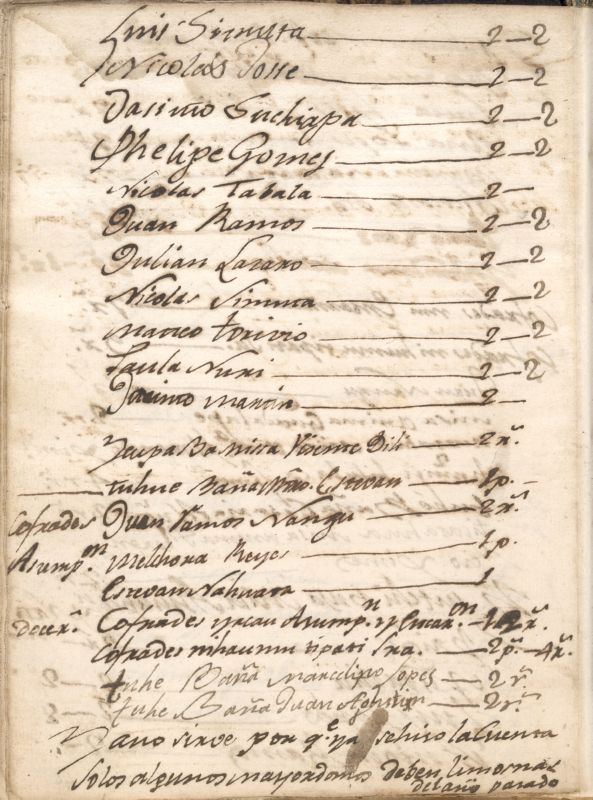 Luis Simuta — 2—2
Nicolas Josse — 2—2
Jasinto Suchiapa — 2—2
Phelipe Gomes — 2—2
Nicolas Tabala — 2—
Juan Ramos — 2—2
Julian Lazaro — 2—2
Nicolas Simuta — 2—2
Matteo torivio — 2—2
Paula Nuri — 2—2
Jacinto martin — 2—
Visente Dili — 2r.s
tuhue Baña Estevan — 1p.—
Cofrades Juan Ramos Nangu — 2r.s
Asump.on Melchora Reyes — 1p.
Estevan Nahuara — 1
Cofrades yacau Asump.n y Encar.on — 12r.s
Cofrades nihaumu tipati Sra. — 2p.s — 4r.s
tuhe Baña Marcelino Lopes — 2r.s
tuhe Baña Juan Agustin — 2r.s
Ya no sirve por q.e ya se hiso la Cuenta
Solos algunos mayordomos deben limosnas
del año pasado